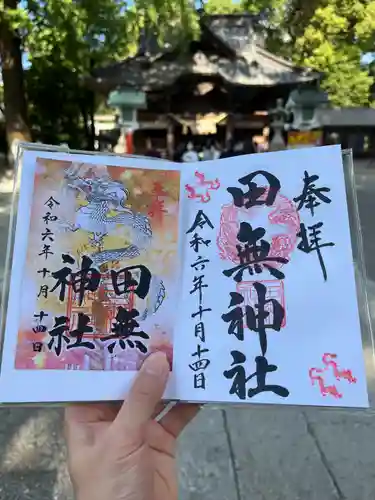 奉拝
田無神社
令和六年十月十四日
奉拝
田無
神社
令和六年十月十四日